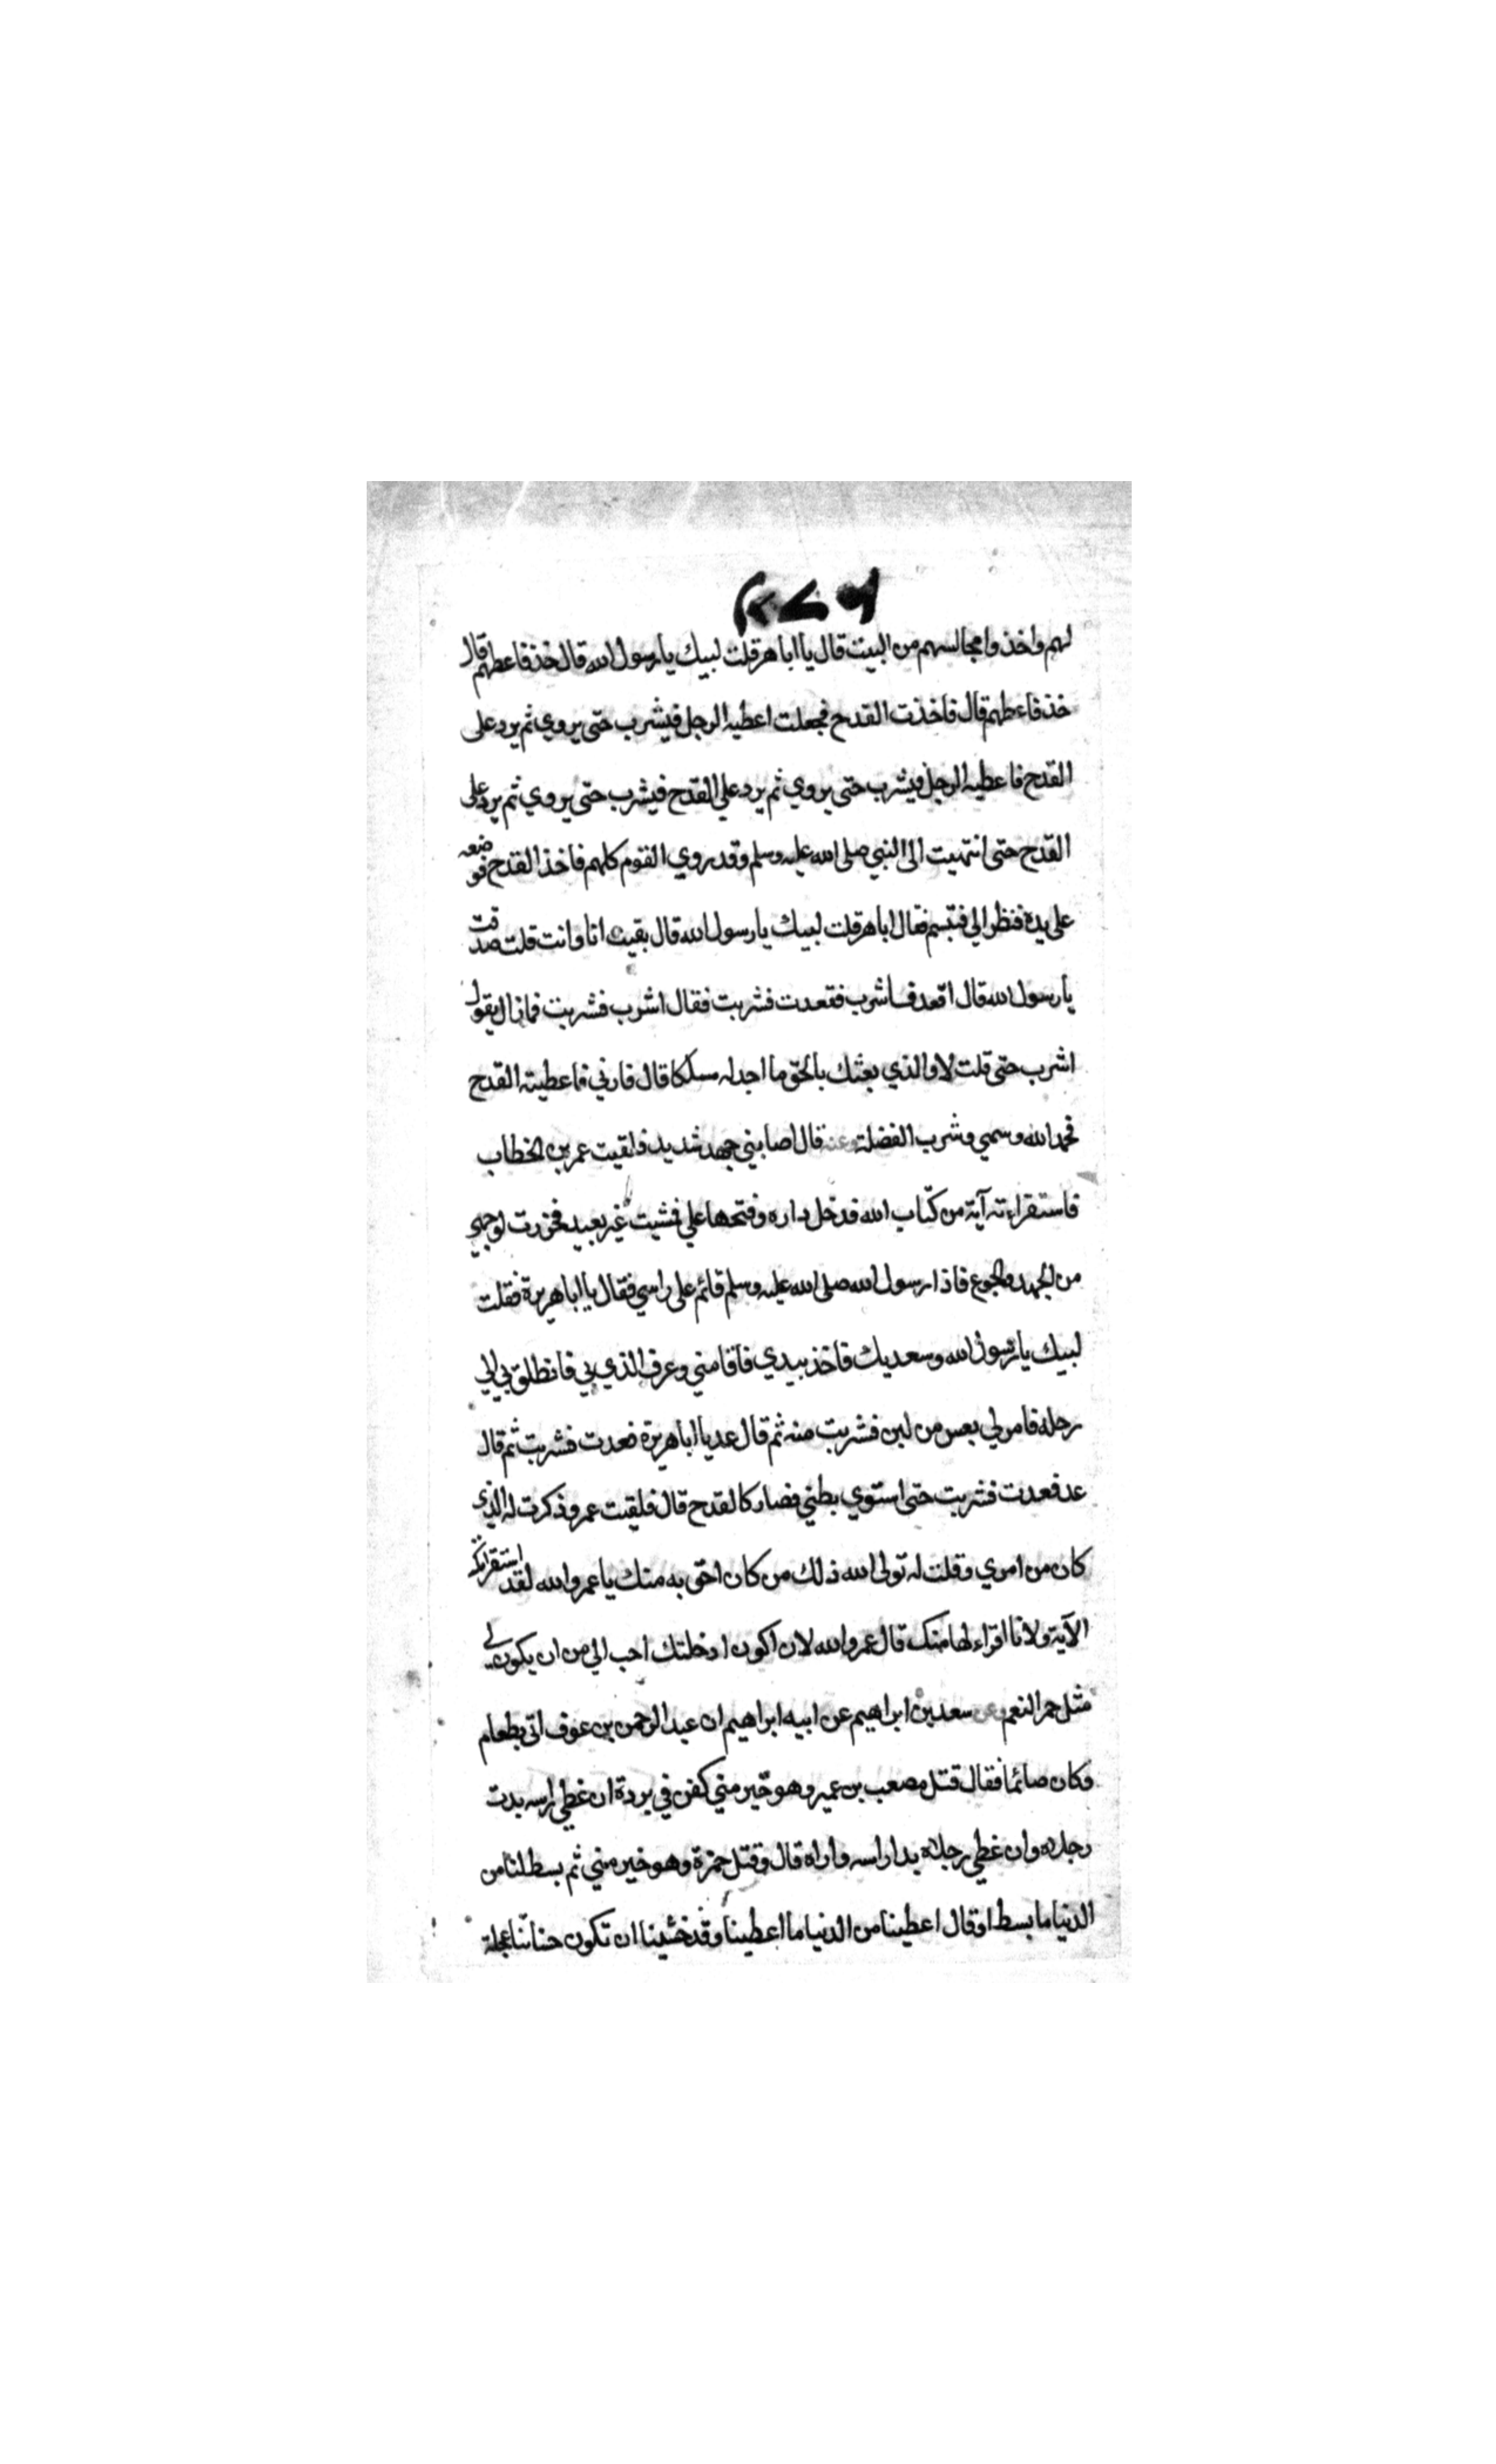 لهم واخذوا مجالسهم من البيت قال يا ابا هر قلت لبيك يا رسول الله قال خذ فاعطهم قال
خذ فاعطهم قال فاخذت القدح فجعلت اعطيه الرجل فيشرب حتى يروي ثم يرد على
القدح فاعطيه الرجل فيشرب حتى يروي ثم يرد علي القدح فيشرب حتى يروي ثم يرد على
القدح حتى انتهيت الى النبي صلى الله عليه وسلم وقد روي القوم كلهم فاخذ القدح فوضعه
على يده فنظر الي فتبسم فقال ابا هر قلت لبيك يا رسول الله قال بقيت انا وانت قلت صدقت
يا رسول الله قال اقعد فاشرب فقعدت فشربت فقال اشرب فشربت فما زال يقول
اشرب حتى قلت لا والذي بعثك بالحق ما اجد له مسلكا قال فارني فاعطيته القدح
فحمد الله وسمي وشرب الفضلة وعنه قال اصابني جهد شديد فلقيت عمر بن الخطاب
فاستقراءته آية من كتاب الله فدخل داره وفتحها علي فمشيت غير بعيد فخررت لوجهي
من الجهد والجوع فاذا رسول الله صلى الله عليه وسلم قائم على راسي فقال يا ابا هريرة فقلت
لبيك يا رسول الله وسعديك فاخذ بيدي فاقامني وعرف الذي بي فانطلق بي الي
رحله فامر لي بعس من لبن فشربت منه ثم قال عد يا ابا هريرة فعدت فشربت ثم قال
عد فعدت فشربت حتى استوي بطني فصار كالقدح قال فلقيت عمر وذكرت له الذي
كان من امري وقلت له تولى الله ذلك من كان احق به منك يا عمر والله لقد استقراتك
الآية ولانا اقراء لها منك قال عمر والله لان اكون ادخلتك احب الي من ان يكون لي
مثل حمر النعم وعن سعد بن ابراهيم عن ابيه ابراهيم ان عبد الرحمن بن عوف اتى بطعام
وكان صائما فقال قتل مصعب بن عمير وهو خير مني كفن في بردة ان غطي راسه بدت
رجلاه وان غطي رجلاه بدا راسه واراه قال وقتل حمزة وهو خير مني ثم بسط لنا من
الدنيا ما بسط او قال اعطينا من الدنيا ما اعطينا وقد خشينا ان تكون حناتنا عجلة